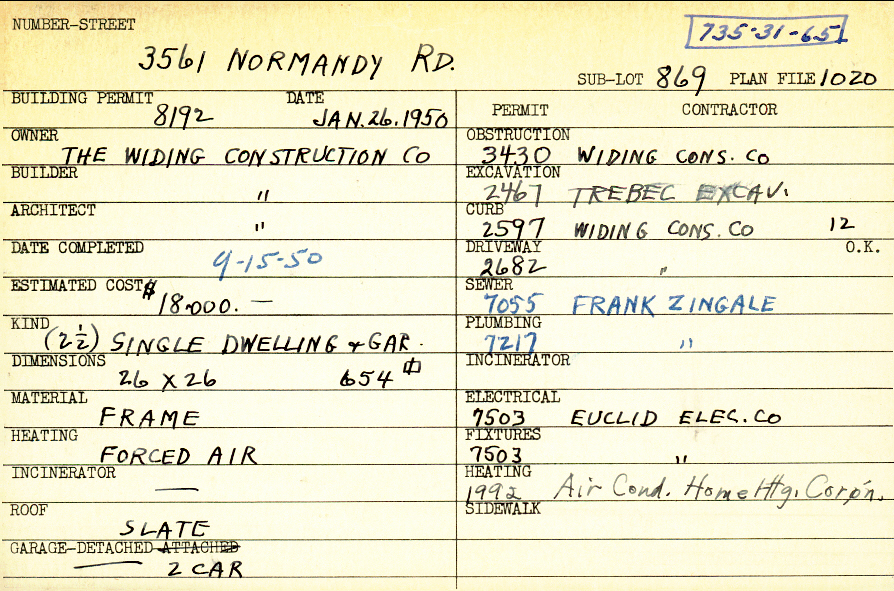 NUMBER-STREET
735-31-65
3561 NORMANDY RD.
SUB-LOT 869 PLAN FILE 1020
BUILDING PERMIT DATE
8192 JAN. 26. 1950
OWNER
THE WIDING CONSTRUCTION CO
BUILDER
"
ARCHITECT
"
DATE COMPLETED
9-15-50
ESTIMATED COST $
18.000. —
KIND
(2½) SINGLE DWELLING + GAR.
DIMENSIONS
26 X 26 654
MATERIAL
FRAME
HEATING
FORCED AIR
INCINERATOR
—
ROOF
SLATE
GARAGE-DETACHED ATTACHED
2 CAR
PERMIT CONTRACTOR
OBSTRUCTION
3430 WIDING CONS. CO
EXCAVATION
2467 TREBEC EXCAV.
CURB
2597 WIDING CONS. CO 12
DRIVEWAY O.K.
2682 "
SEWER
7055 FRANK ZINGALE
PLUMBING
7217 "
INCINERATOR
ELECTRICAL
7503 EUCLID ELEC. CO
FIXTURES
7503 "
HEATING
1992 Air Cond. Home Htg. Corp'n.
SIDEWALK